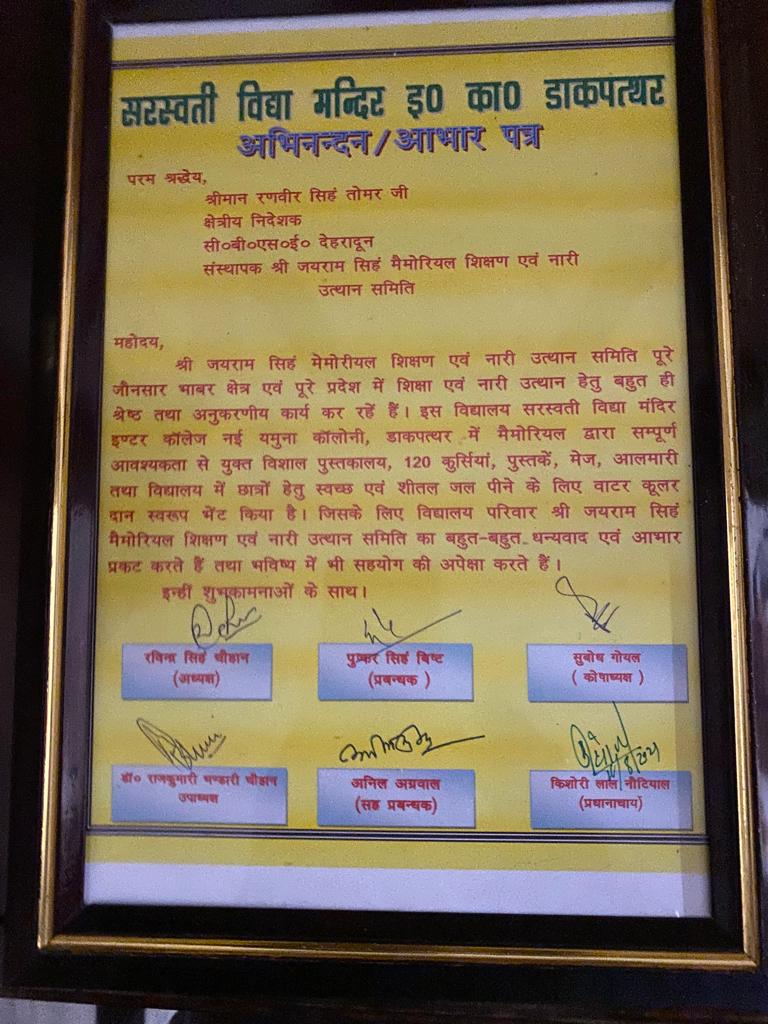 सरस्वती विद्या मन्दिर इ0 का0 डाकपत्थर
अभिनन्दन/आभार पत्र
परम श्रद्धेय,
श्रीमान रणवीर सिहं तोमर जी
क्षेत्रीय निदेशक
सी०बी०एस०ई० देहरादून
संस्थापक श्री जयराम सिहं मैमोरियल शिक्षण एवं नारी
उत्थान समिति
महोदय,
श्री जयराम सिहं मेमोरीयल शिक्षण एवं नारी उत्थान समिति पूरे
जौनसार भाबर क्षेत्र एवं पूरे प्रदेश में शिक्षा एवं नारी उत्थान हेतु बहुत ही
श्रेष्ठ तथा अनुकरणीय कार्य कर रहें हैं। इस विद्यालय सरस्वती विद्या मंदिर
इण्टर कॉलेज नई यमुना कॉलोनी, डाकपत्थर में मैमोरियल द्वारा सम्पूर्ण
आवश्यकता से युक्त विशाल पुस्तकालय, 120 कुर्सियां, पुस्तकें, मेज, आलमारी
तथा विद्यालय में छात्रों हेतु स्वच्छ एवं शीतल जल पीने के लिए वाटर कूलर
दान स्वरूप भेंट किया है। जिसके लिए विद्यालय परिवार श्री जयराम सिहं
मैमोरियल शिक्षण एवं नारी उत्थान समिति का बहुत-बहुत धन्यवाद एवं आभार
प्रकट करते हैं तथा भविष्य में भी सहयोग की अपेक्षा करते हैं।
इन्हीं शुभकामनाओं के साथ।
रविन्द्र सिहं चौहान
(अध्यक्ष)
पुष्कर सिहं बिष्ट
(प्रबन्धक )
सुबोध गोयल
( कोषाध्यक्ष )
डॉ० राजकुमारी भण्डारी चौहान
उपाध्यक्ष
अनिल अग्रवाल
(सह प्रबन्धक)
किशोरी लाल नौटियाल
(प्रधानाचार्य)